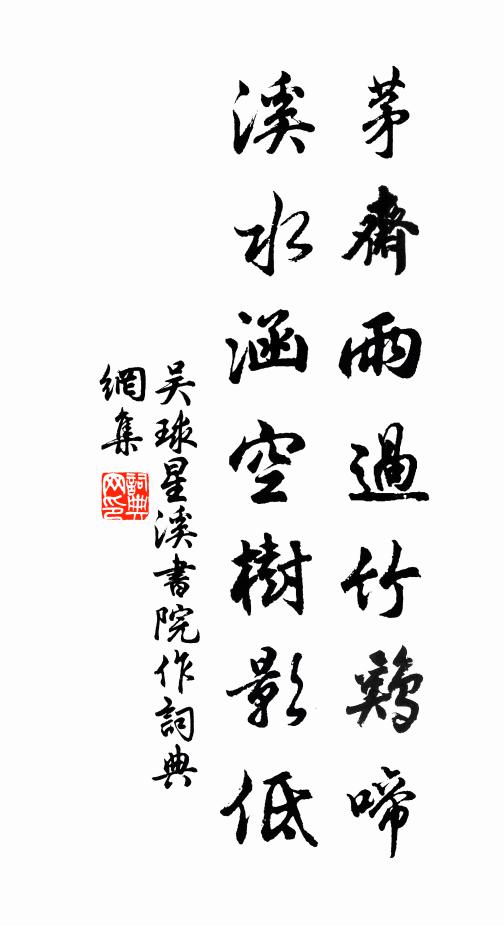 茅齋雨過竹鷄啼
溪水涵空樹影低
吴球星溪書院作詞典
網集
詞典网印